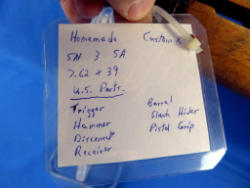 Homemade Custom
SN 3 SA
7.62 x 39
U.S. Parts
Trigger
Hammer
Disconnect
Receiver
Barrel
Flash Hider
Pistol Grip